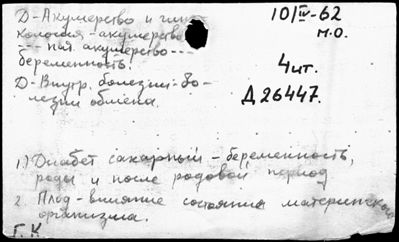 Д-Акушерство и гине
кология-акушерство
--- пат. акушерство---
беременность.
Д-Внутр. болезни-бо-
лезни обмена.
10/IV-62
м.о.
4ит.
Д26447.
1.) Диабет сахарный - беременность,
роды и после родовой период
2. Плод-влияние состояния материнского
организма.
Г.К